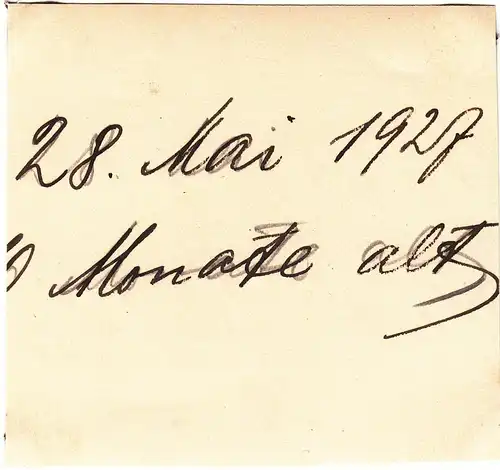 28. Mai 1927
Monate alt